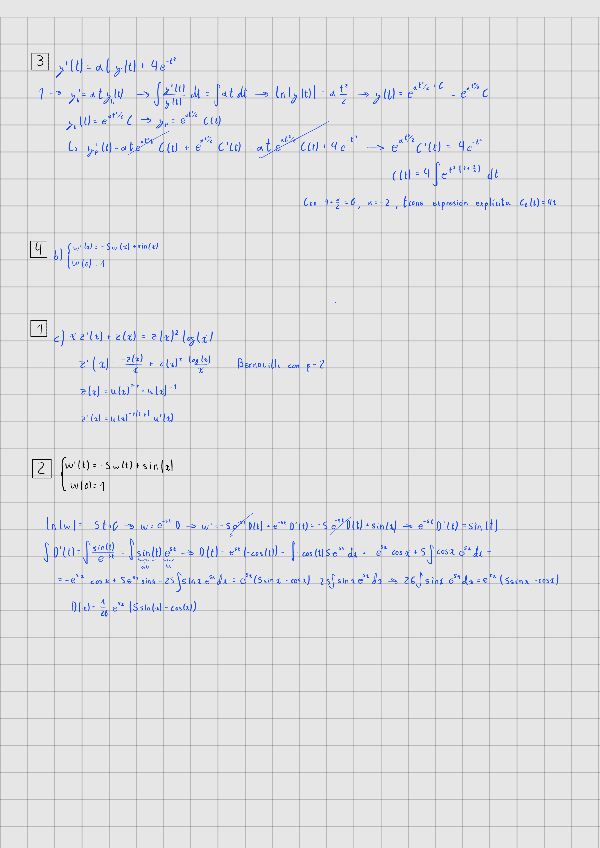 3 y'(t) = αt y(t) + 4e^{-t²}
1 → y_h' = αt y_h(t) → ∫ y'(t)/y(t) dt = ∫ αt dt → ln|y(t)| = α t²/2 → y(t) = e^{αt²/2 + C} = e^{αt²/2} C
y_h(t) = e^{αt²/2} C → y_p = e^{αt²/2} C(t)
↳ y_p'(t) = αt e^{αt²/2} C(t) + e^{αt²/2} C'(t) = αt e^{αt²/2} C(t) + 4e^{-t²} → e^{αt²/2} C'(t) = 4e^{-t²}
C(t) = 4 ∫ e^{-t²(1+α/2)} dt
Con 1+α/2 = 0, α = -2, tiene expresión explícita C(t) = 4t
4 b) { w'(x) = -5w(x) + sin(x)
w(0) = 1
1 c) x z'(x) + z(x) = z(x)² log(x)
z'(x) = -z(x)/x + z(x)² log(x)/x Bernoulli con p=2
z(x) = u(x)^{1-p} = u(x)^{-1}
2 { w'(t) = -5w(t) + sin(x)
w(0) = 1
ln|w| = -5t + C → w = e^{-5t} D → w' = -5e^{-5t} D(t) + e^{-5t} D'(t) = -5e^{-5t} D(t) + sin(x) → e^{-5t} D'(t) = sin(t)
∫ D'(t) = ∫ sin(t)/e^{-5t} = ∫ sin(t) e^{5t} → D(t) = e^{5t}(-cos(t)) - ∫ -cos(t) 5e^{5x} dx = -e^{5x} cos x + 5 ∫ cos x e^{5x} dx =
= -e^{5x} cos x + 5e^{5x} sin x - 25 ∫ sin x e^{5x} dx = e^{5x}(5sin x - cos x) - 25 ∫ sin x e^{5x} dx → 26 ∫ sin x e^{5x} dx = e^{5x}(5sin x - cos x)
D(x) = 1/26 e^{5x} (5sin(x) - cos(x))